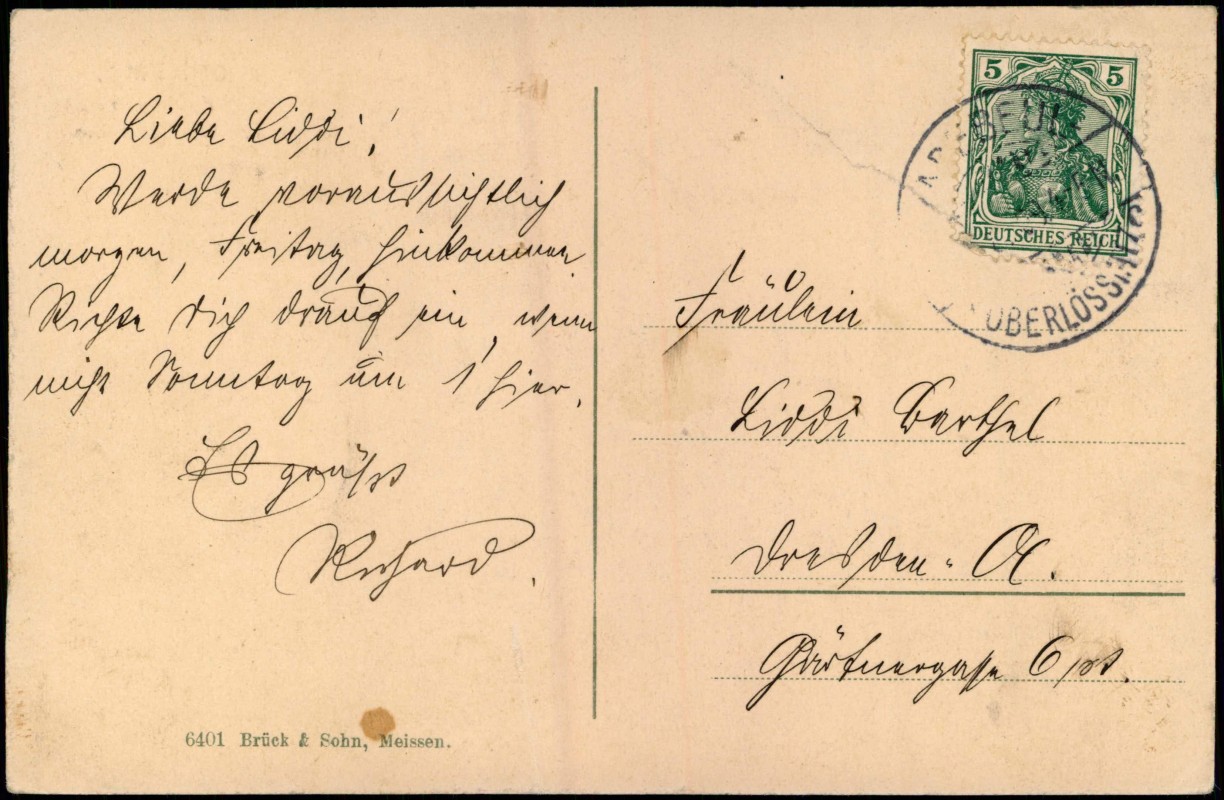 Liebe Liddi!
Werde voraussichtlich
morgen, Freitag, hinkommen.
Richte Dich drauf ein, wenn
nicht Sonntag um 1 hier.
Es grüßt
Richard.
6401 Brück & Sohn, Meissen.
5 5
DEUTSCHES REICH
RADEBEUL
OBERLÖSSNITZ
Fräulein
Liddi Barthel
Dresden-A.
Gärtnergasse 6 pt.